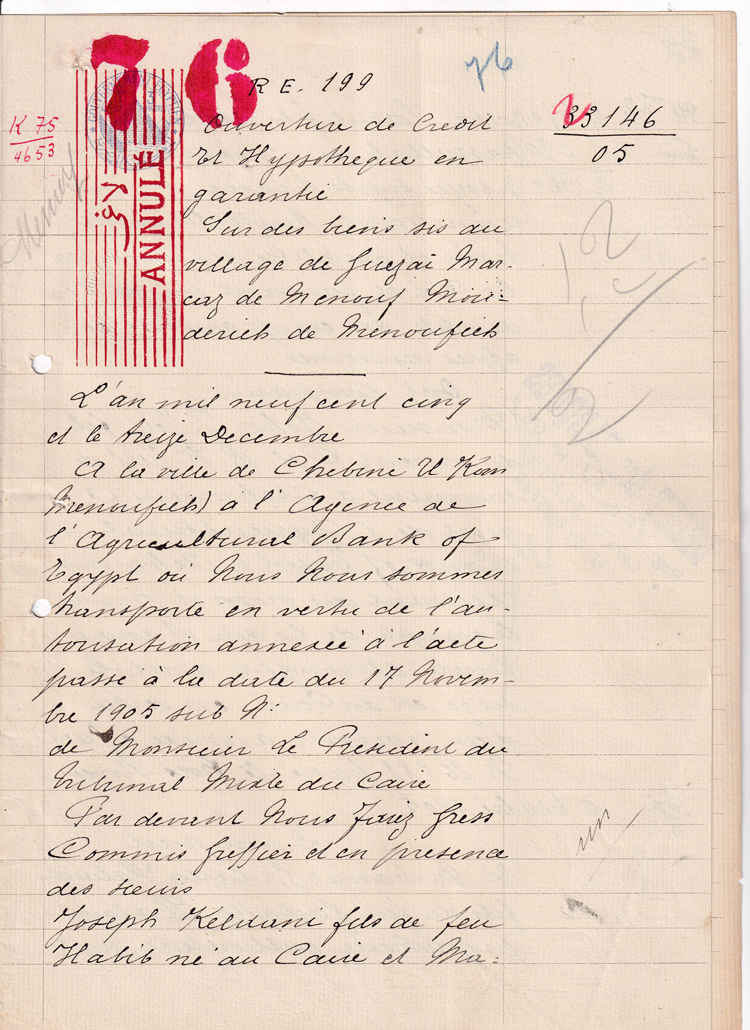 76
76
R E. 199
K 75
4653
33146
05
لاغي
ANNULÉ
Ouverture de Credit
Et Hypothèque en
garantie
Sur des biens sis au
village de Guezai Mar-
caz de Menouf Mou-
derieh de Menoufieh
L'an mil neuf cent cinq
et le treize Decembre
A la ville de Chebini El Kom
Menoufieh) à l'Agence de
l'Agricultural Bank of
Egypt où Nous Nous sommes
transporté en vertu de l'au-
torisation annexée à l'acte
passé à la date du 17 Novem-
bre 1905 sub N:
de Monsieur Le President du
Tribunal Mixte du Caire
Par devant Nous Faiez Gress
Commis Greffier et en presence
des sieurs
Joseph Keldani fils de feu
Habib né au Caire et Ma-
un